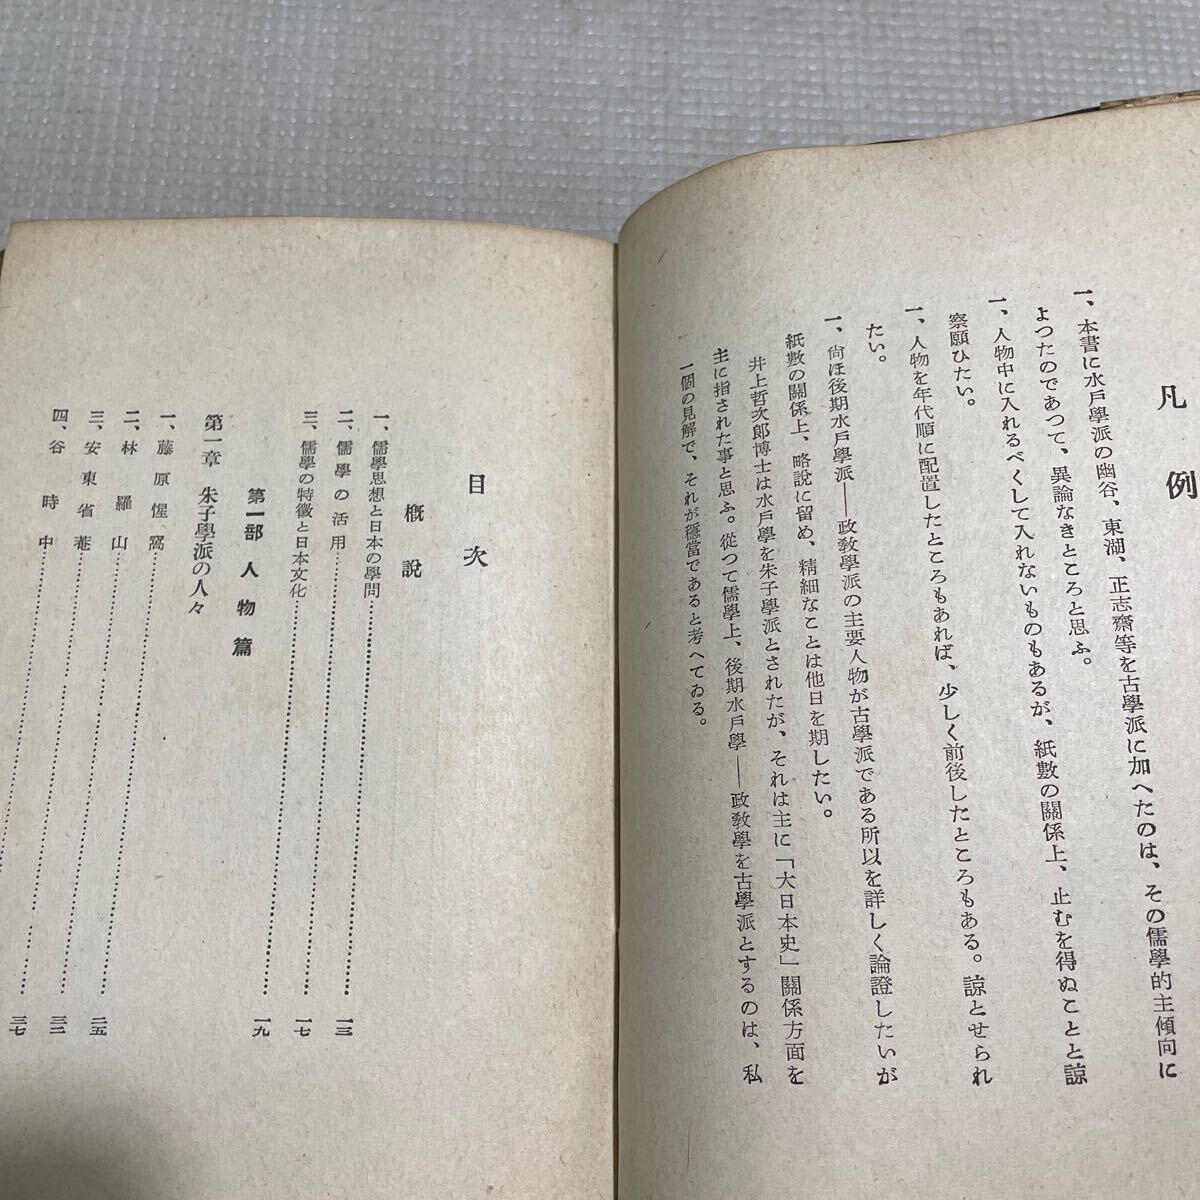 凡例
一、本書に水戸學派の幽谷、東湖、正志齋等を古學派に加へたのは、その儒學的主傾向に
よつたのであつて、異論なきところと思ふ。
一、人物中に入れるべくして入れないものもあるが、紙數の關係上、止むを得ぬことと諒
察願ひたい。
一、人物を年代順に配置したところもあれば、少しく前後したところもある。諒とせられ
たい。
一、尙ほ後期水戸學派——政敎學派の主要人物が古學派である所以を詳しく論證したいが
紙數の關係上、略說に留め、精細なことは他日を期したい。
井上哲次郎博士は水戸學を朱子學派とされたが、それは主に「大日本史」關係方面を
主に指された事と思ふ。從つて儒學上、後期水戸學——政敎學を古學派とするのは、私
一個の見解で、それが穩當であると考へてゐる。
目次
槪說
一、儒學思想と日本の學問
二、儒學の活用 一三
三、儒學の特徵と日本文化 一七
第一部 人物篇
第一章 朱子學派の人々
一、藤原惺窩 一九
二、林羅山 二五
三、安東省菴 三二
四、谷時中 三七